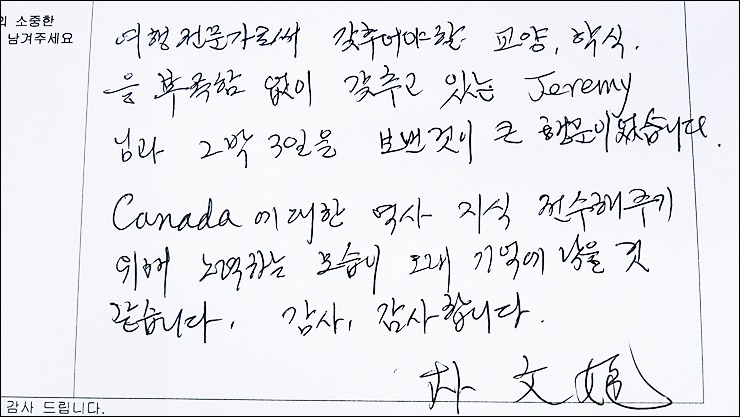 의 소중한
남겨주세요
여행전문가로써 갖추어야할 교양, 학식.
을 부족함 없이 갖추고 있는 Jeremy
님과 2박 3일을 보낸것이 큰 행운이었습니다.
Canada에대한 역사 지식 전수해주기
위해 노력하는 모습이 오래 기억에 남을 것
같습니다. 감사, 감사합니다.
朴 文
감사 드립니다.